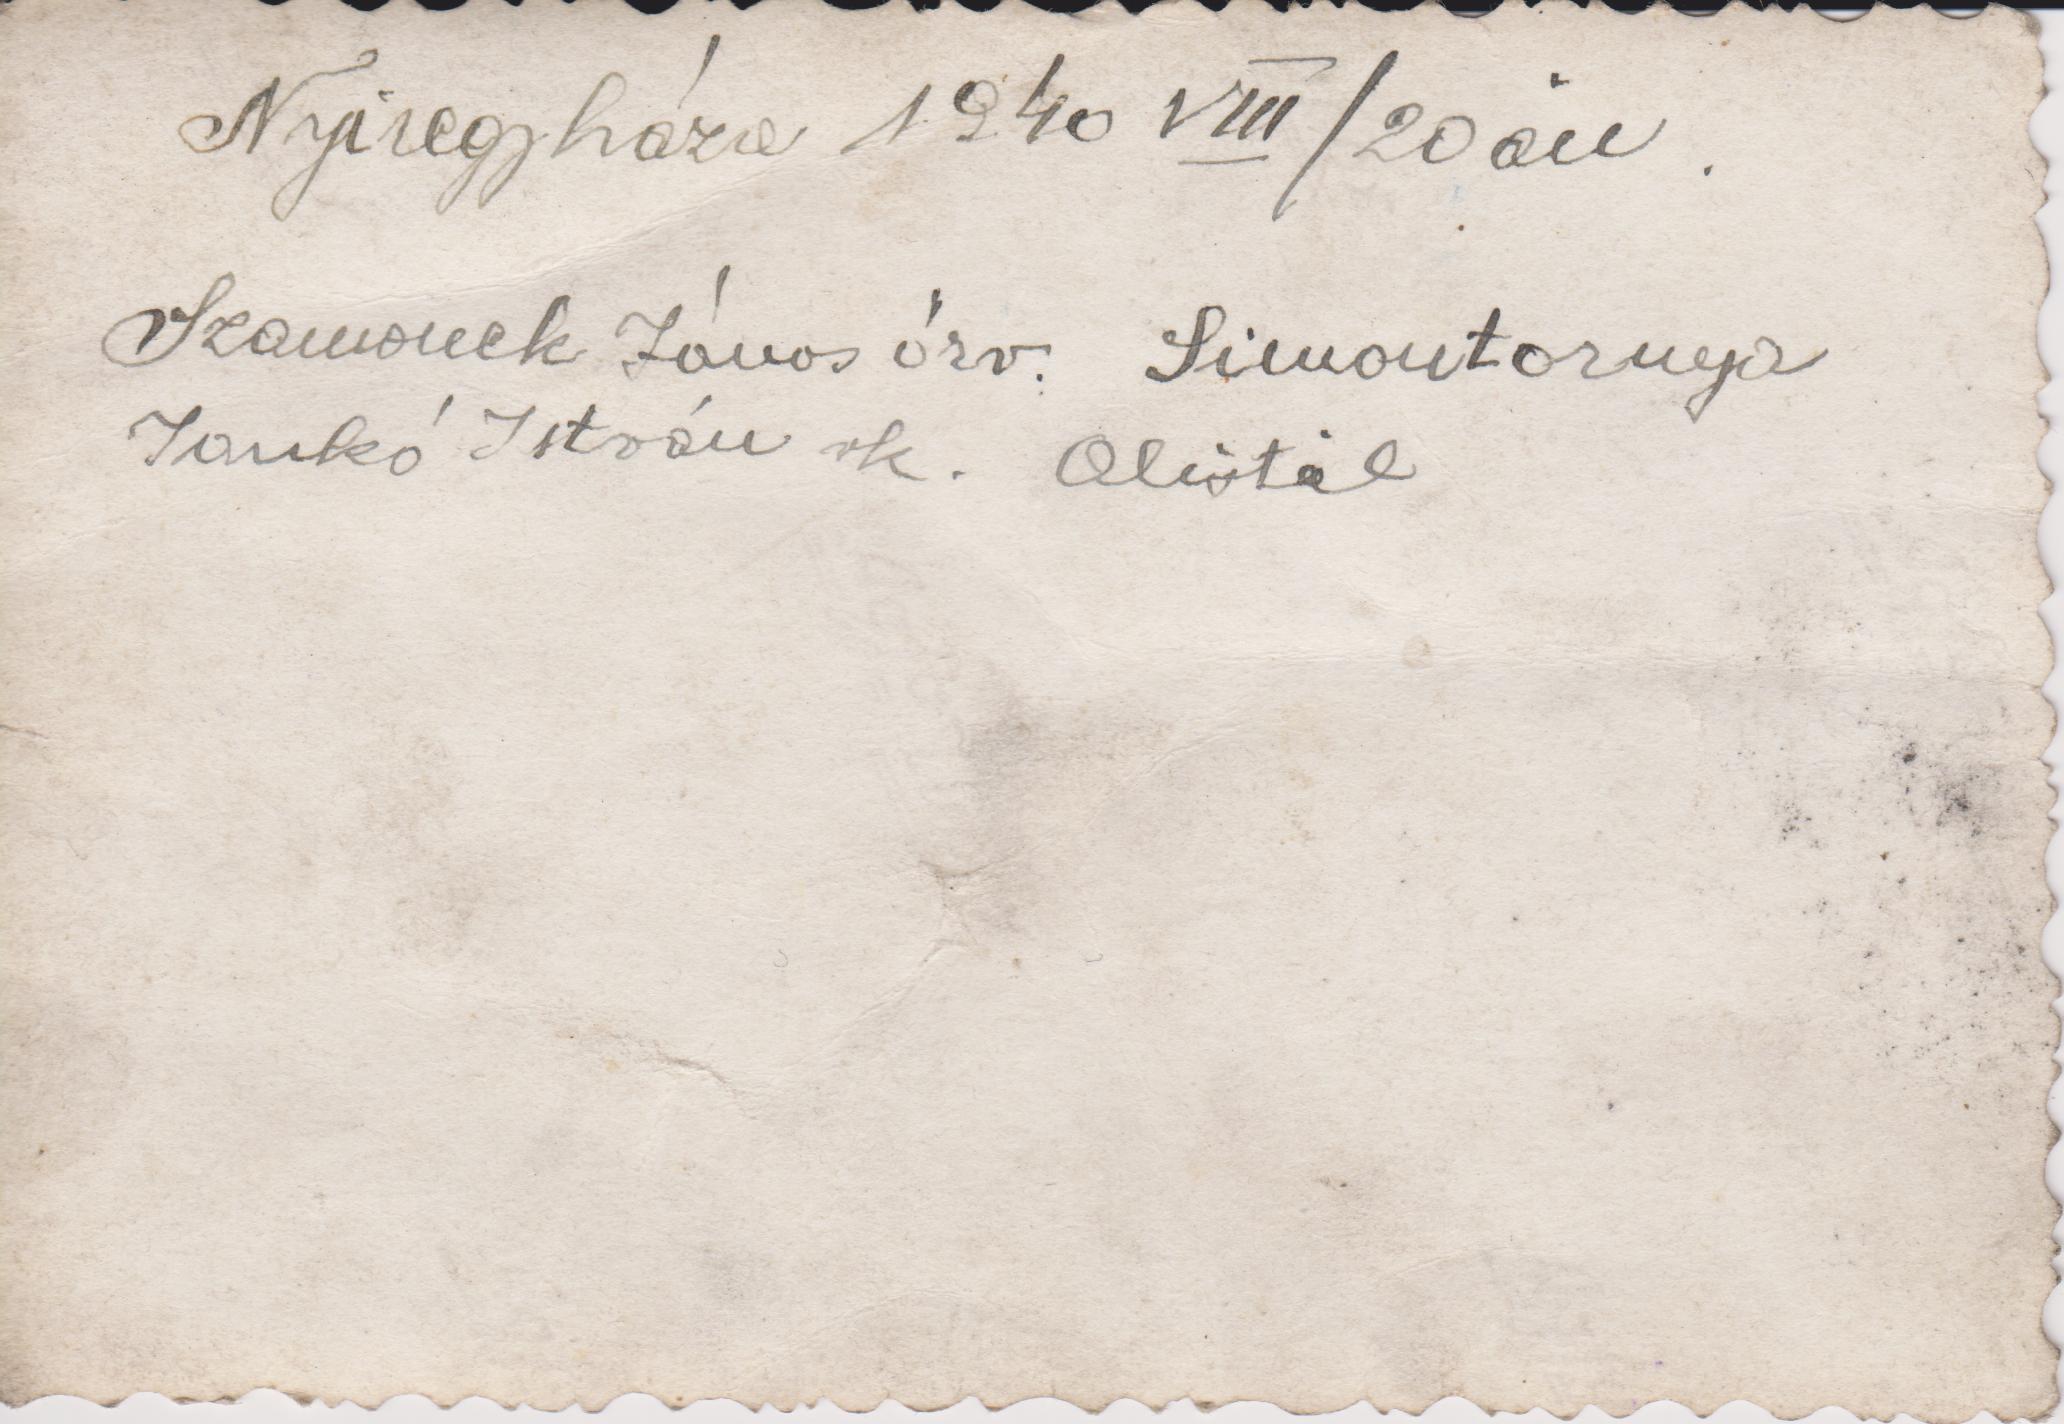 Nyiregyháza 1940 VIII/20 án.
Szamonek János őrv. Simontornya
Jankó István vk. Alistál